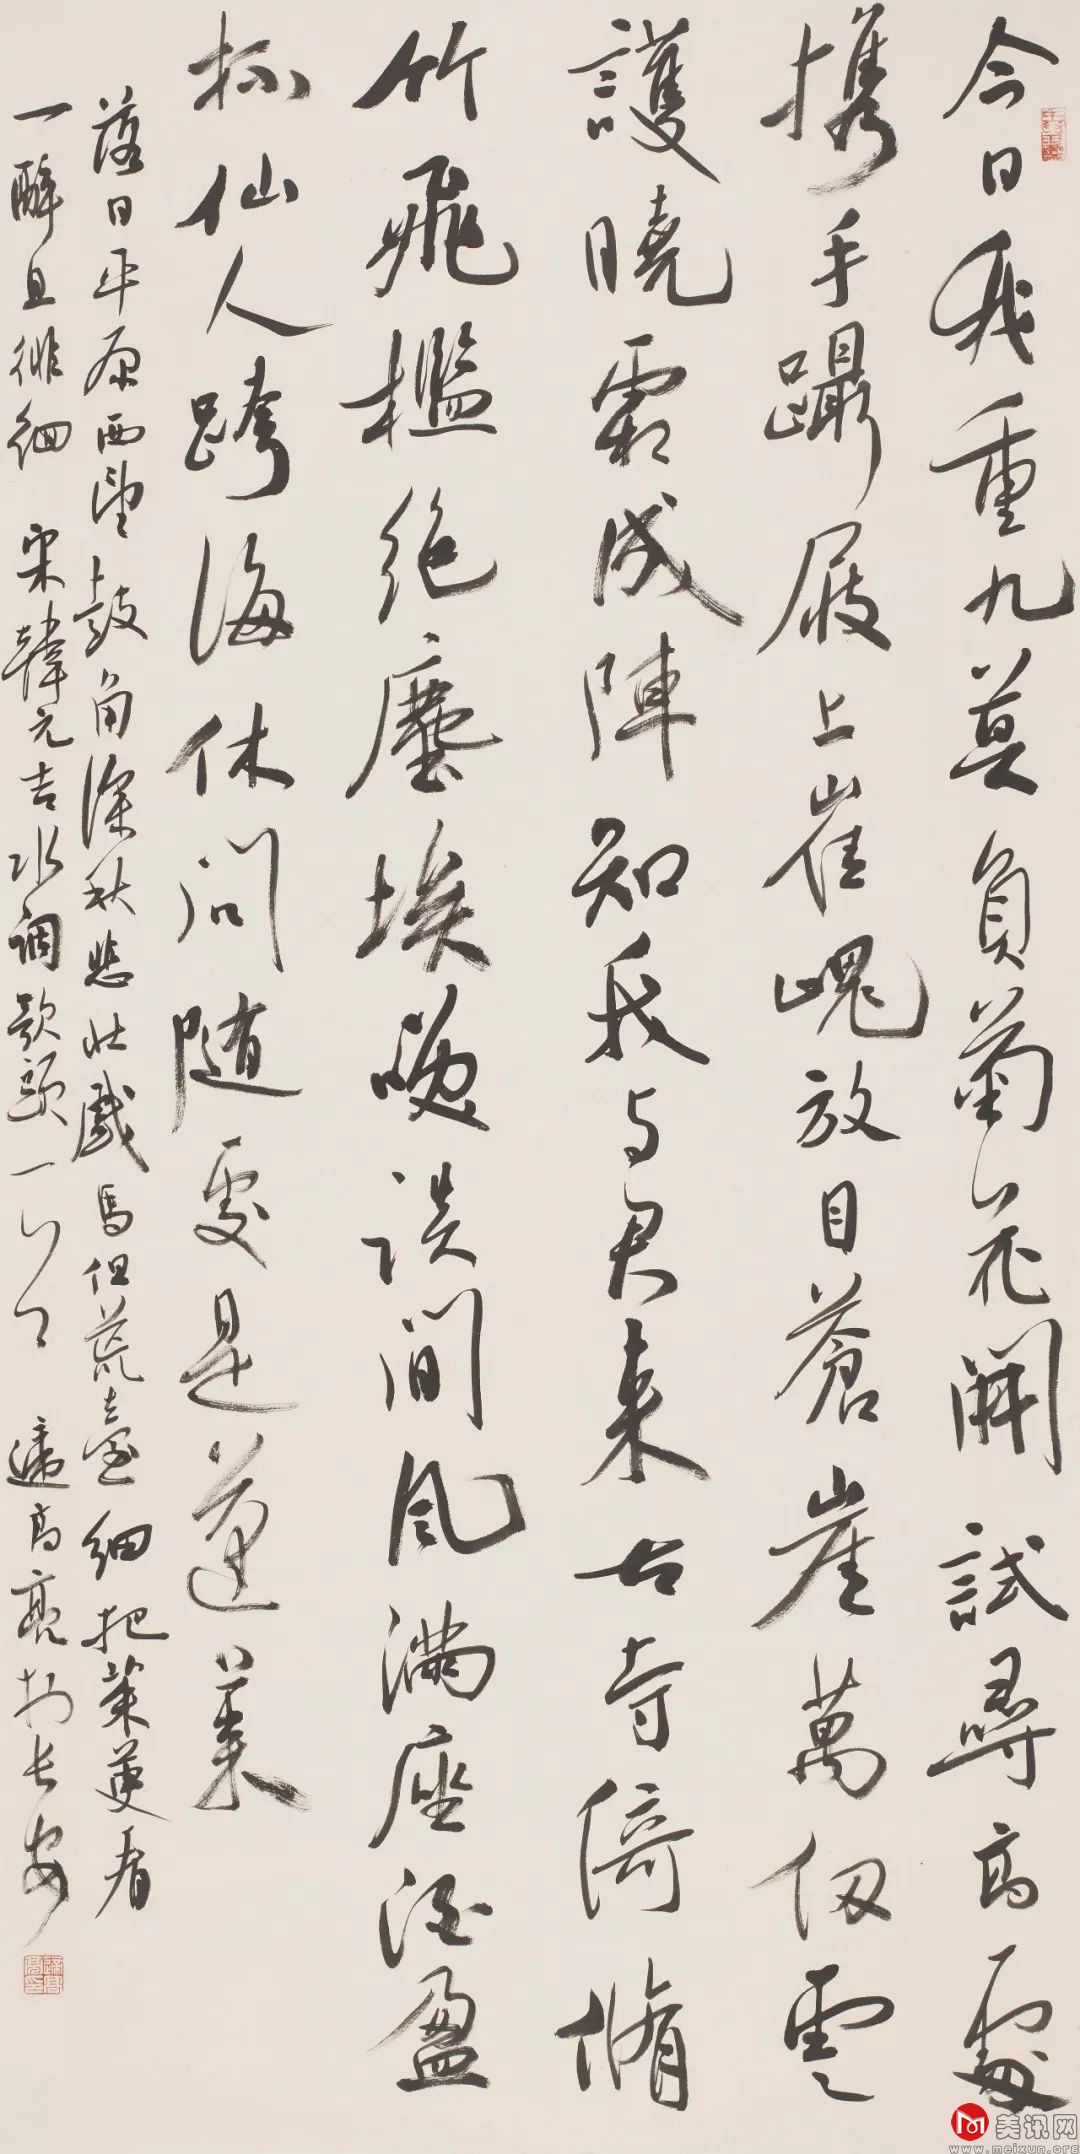 今日我重九莫負菊花開試尋高處
携手躡屐上崔嵬放目蒼崖萬仞雲
護曉霜成陣知我与君来古寺倚脩
竹飛檻絶塵埃咲談間風满座酒盈
杯仙人跨海休问随處是蓬莱
落日平原西望鼓角深秋悲壮戲馬但荒臺细把茱萸看
一醉且徘徊 宋韓元吉水调歌頭一首 高亮於长安
美讯网
www.meixun.org